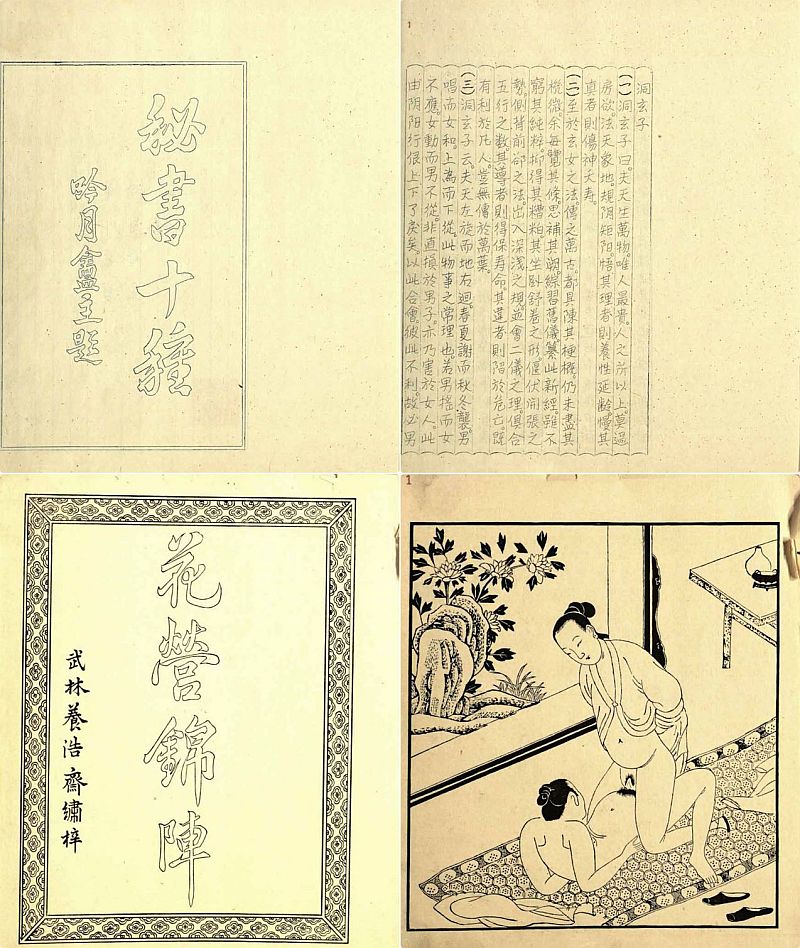 秘書十種
吟月盦主題
1
洞玄子
(一)洞玄子曰。夫天生萬物。唯人最貴。人之所以上。莫過
房欲。法天象地。規阴矩阳。悟其理者則養性延齡。慢其
真者則傷神夭寿。
(二)至於玄女之法。傳之萬古。都具陳其梗概。仍未盡其
機微。余每覽其條。思補其闕。綜習舊儀。纂此新經。雖不
窮其純粹。抑得其糟粕。其坐卧舒卷之形。偃伏開張之
勢。側背前卻之法。出入深浅之規。並會二儀之理。俱合
五行之数。其導者則得保寿命。其違者則陷於危亡。既
有利於凡人。豈無傳於萬葉。
(三)洞玄子云。夫天左旋而地右迴。春夏謝而秋冬襲。男
唱而女和。上為而下從。此物事之常理也。若男摇而女
不應。女動而男不從。非直損於男子。亦乃害於女人。此
由阴阳行佷。上下了戾矣。以此合會。彼此不利。故必男
花營錦陣
武林養浩齋繡梓
1